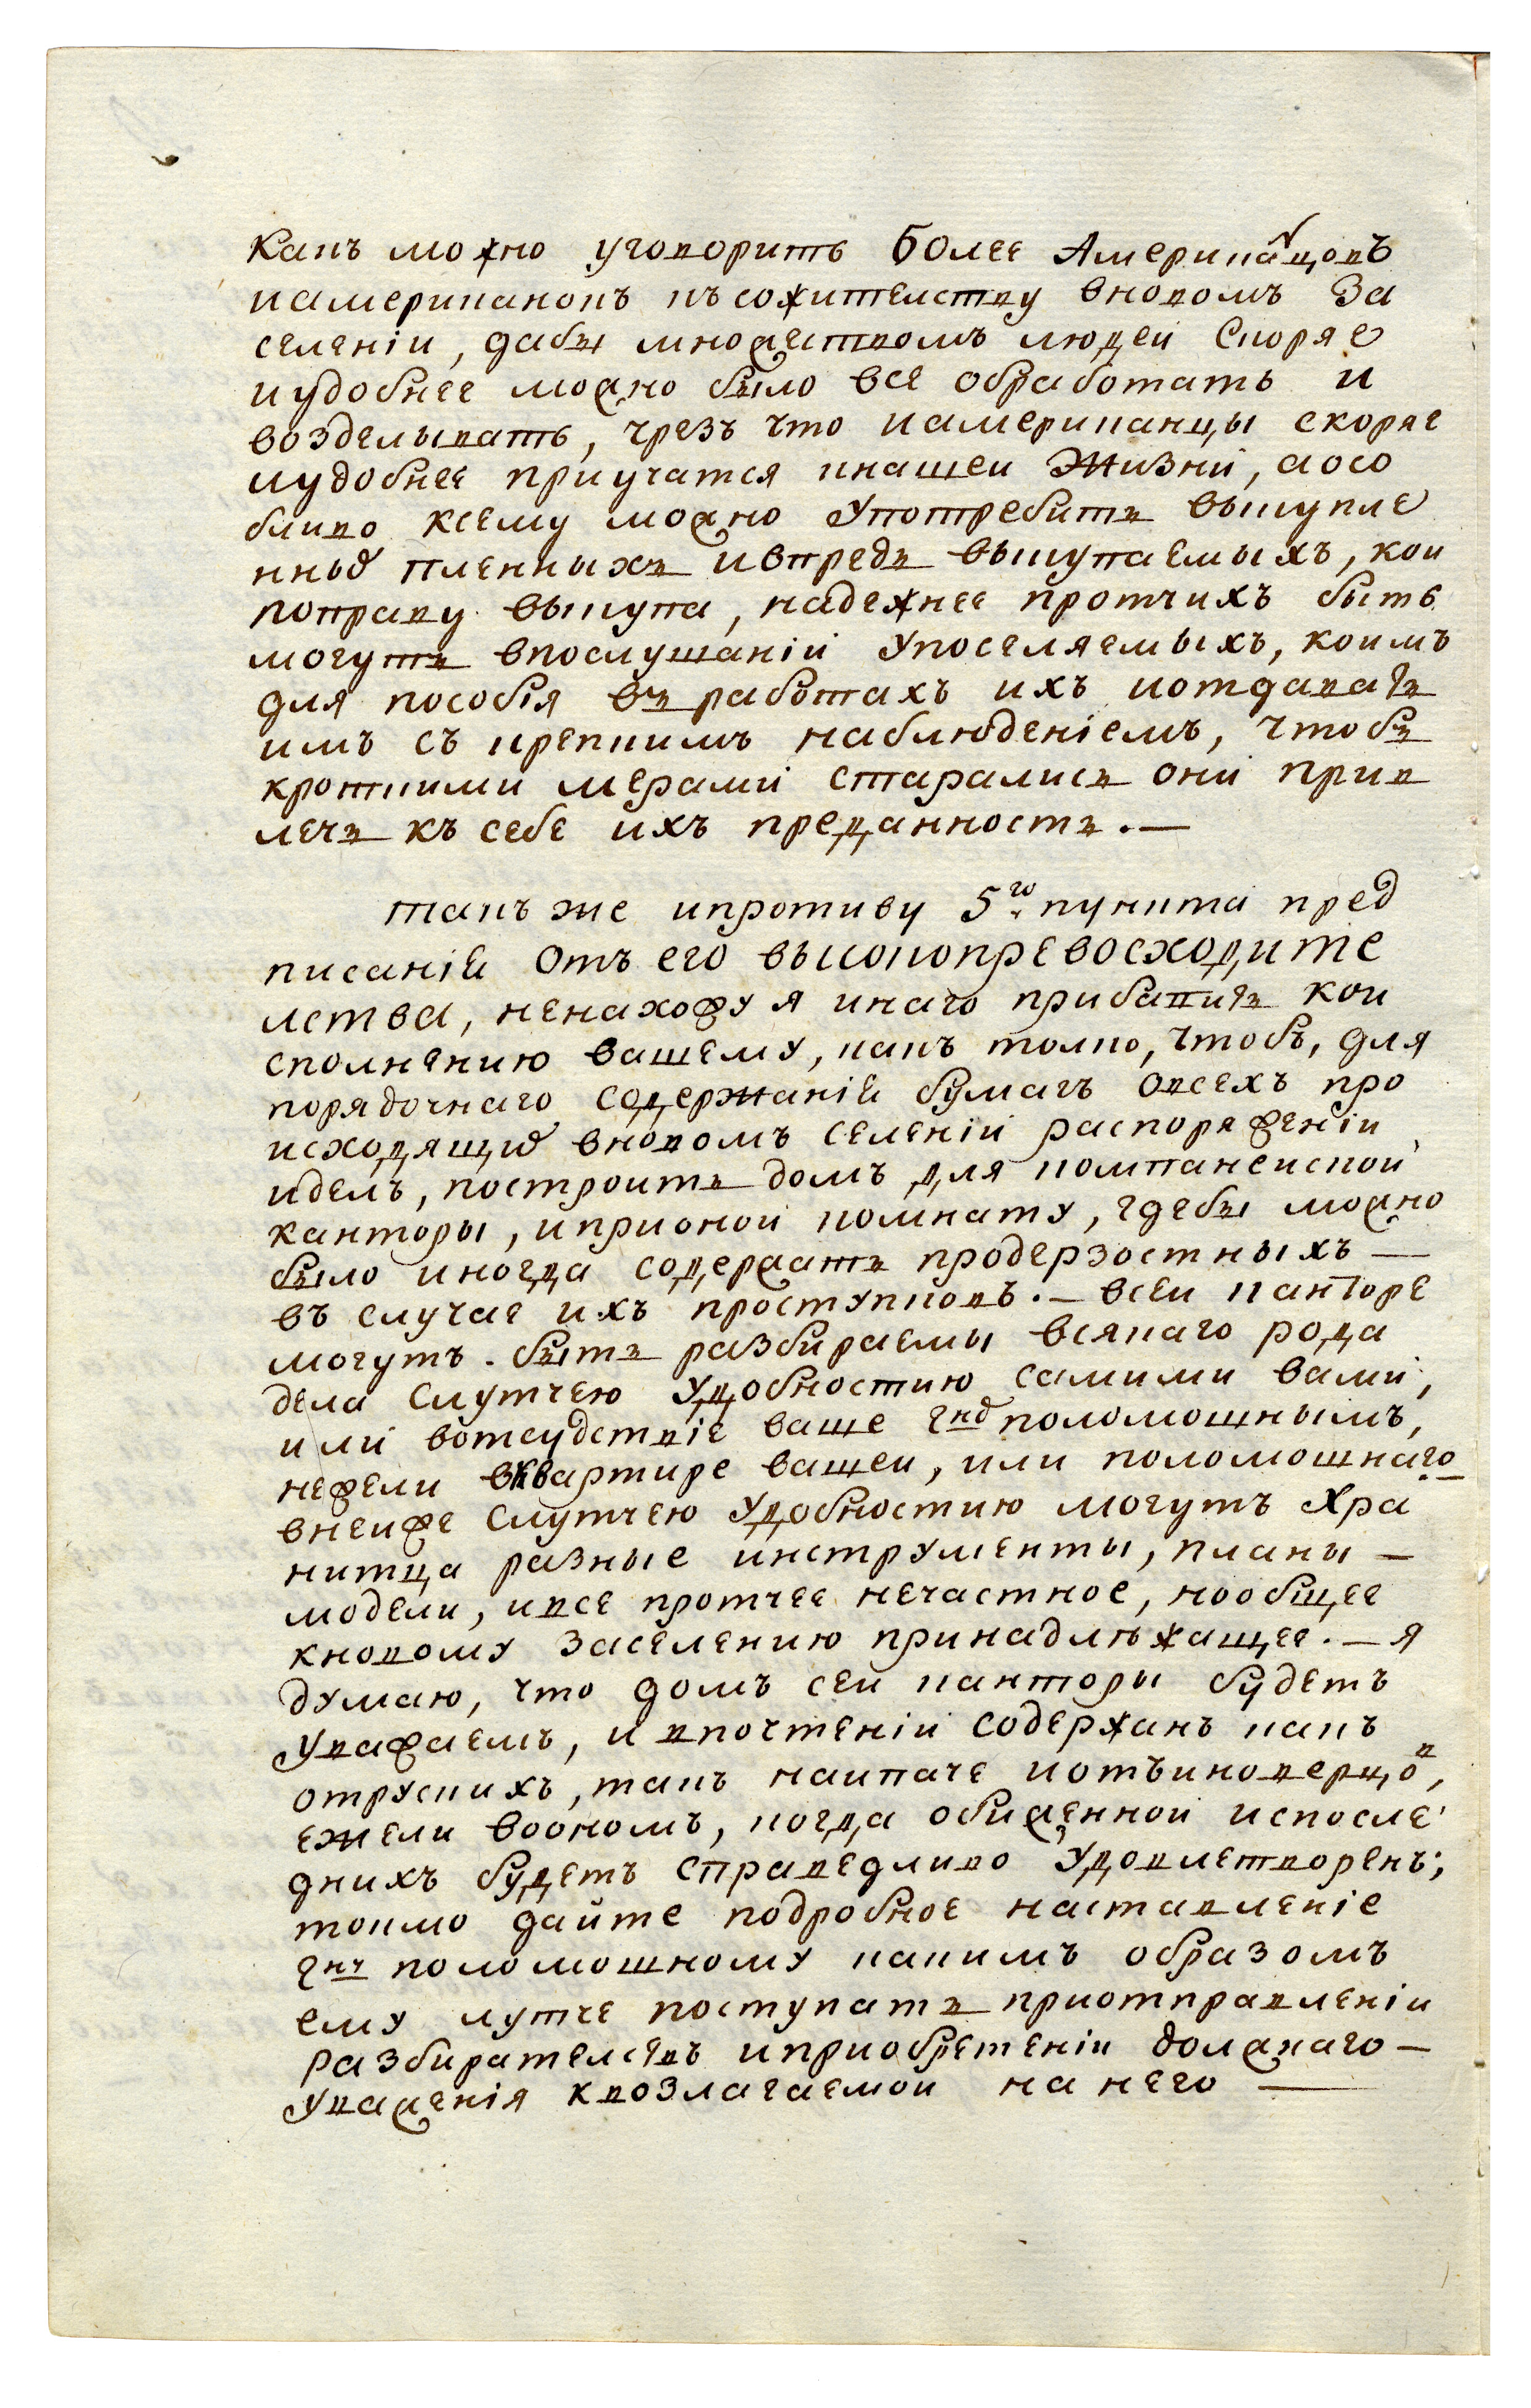 Какъ можно уговорить Более Американцовъ
иамериканокъ къ сожителству вновомъ За
селеніи, дабы множествомъ людеи Скоряе
иудобнее можно было все обработать и
возделывать, чрезъ что иамериканцы скоряе
иудобнее приучатся кнашеи Жизни, аосо
бливо ксему можно Употребить выкупле
нныхъ пленныхъ ивпредь выкупаемыхъ, кои
поправу выкупа, надежнее протчихъ быть
могутъ впослушаніи Упоселяемыхъ, коимъ
для пособія въ работахъ ихъ иотдавать
имъ съ крепкимъ наблюденіемъ, чтобъ
кроткими мерами старались они прив
лечь къ себе ихъ преданность. —
такъ же ипротиву 5го пункта пред
писаніи Отъ его высокопревосходите
лства, ненахожу я инаго прибавить кои
сполнению вашему, какъ толко, чтобъ, для
порядочнаго содержаніи бумагъ овсехъ про
исходящихъ вновомъ селеніи распоряженіи
иделъ, построить домъ для компанеискои
канторы, иприонои комнату, гдебы можно
было иногда содержать продерзостныхъ —
въ случае ихъ проступковъ. — всеи канторе
могутъ быть разбираемы всякаго рода
дела Слутчею Удобностию самими вами,
или вотсудствіе ваше Гнд поломошнымъ,
нежели вквартире вашеи, или поломошнаго
внеиже Слутчею Удобностию могутъ Хра
нитца разные инструменты, планы —
модели, ивсе протчее нечастное, нообщее
кновому заселению принадлѣжащее. — Я
думаю, что домъ сеи канторы будетъ
Уважаемъ, и впочтеніи содержанъ какъ
отрускихъ, такъ наипаче иотъиноверцовъ,
ежели воономъ, когда обиженнои испосле
днихъ будетъ Справедливо Удовлетворенъ;
токмо дайте подробное наставленіе
Гну поломошному какимъ образомъ
ему лутче поступать приотправленіи
разбирателствъ иприобретеніи должнаго —
Уваженія квозлагаемои на него —